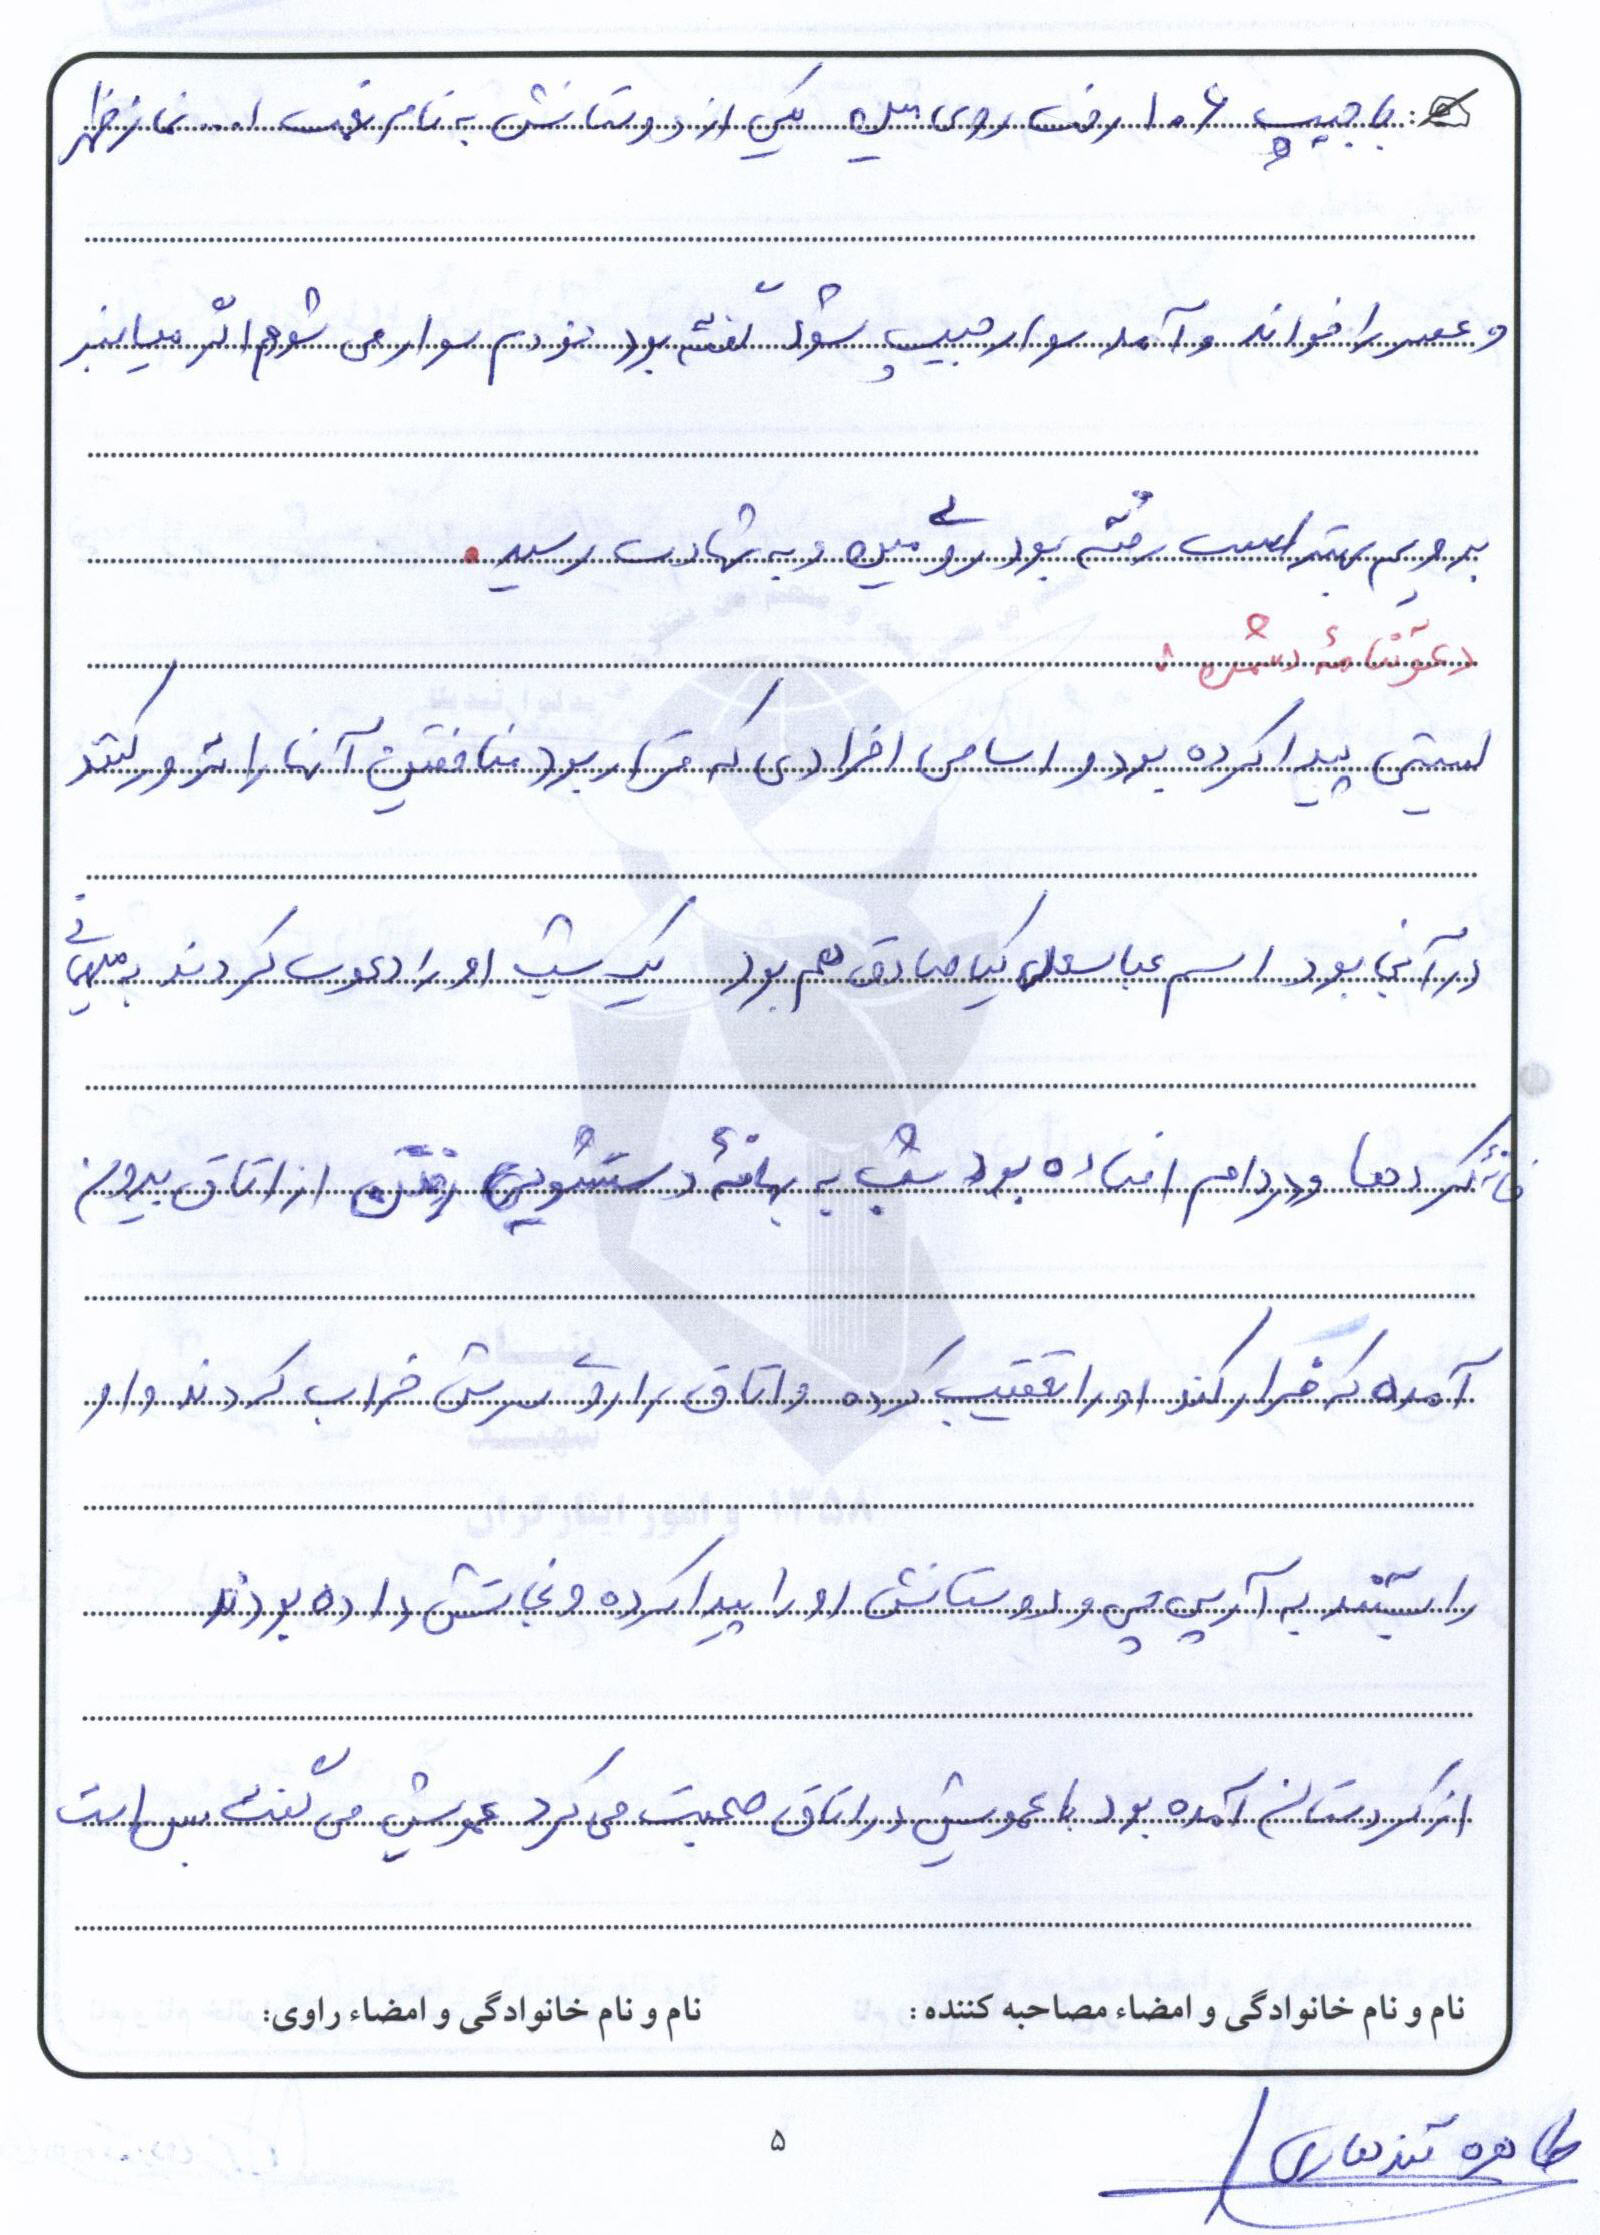 با جیپ ۱۰۶ رفت روی مین یکی از دوستانش به نام نعمت ا... نماز ظهر
و عصر را خواند و آمد سوار جیپ شود گفته بود خودم سوار می شوم اگر میانبر
برویم بهتر است رفته بود روی مین و به شهادت رسید.
دعوتنامهٔ دشمن:
لیستی پیدا کرده بود و اسامی افرادی که قرار بود منافقین آنها را ترور کنند
در آنجا بود اسم عباسعلی کیاصادق هم بود یک شب او را دعوت کردند به میهمانی
خانهٔ کردها و در دام افتاده بود شب به بهانهٔ دستشویی رفتن از اتاق بیرون
آمده که فرار کند او را تعقیب کرده و اتاق را روی سرش خراب کردند و او
را بستند به آرپی جی و دوستانش او را پیدا کرده و نجاتش داده بودند
از کردستان آمده بود با عمویش در اتاق صحبت می کرد عمویش می گفت بس است
نام و نام خانوادگی و امضاء مصاحبه کننده: نام و نام خانوادگی و امضاء راوی:
طاهره
۵